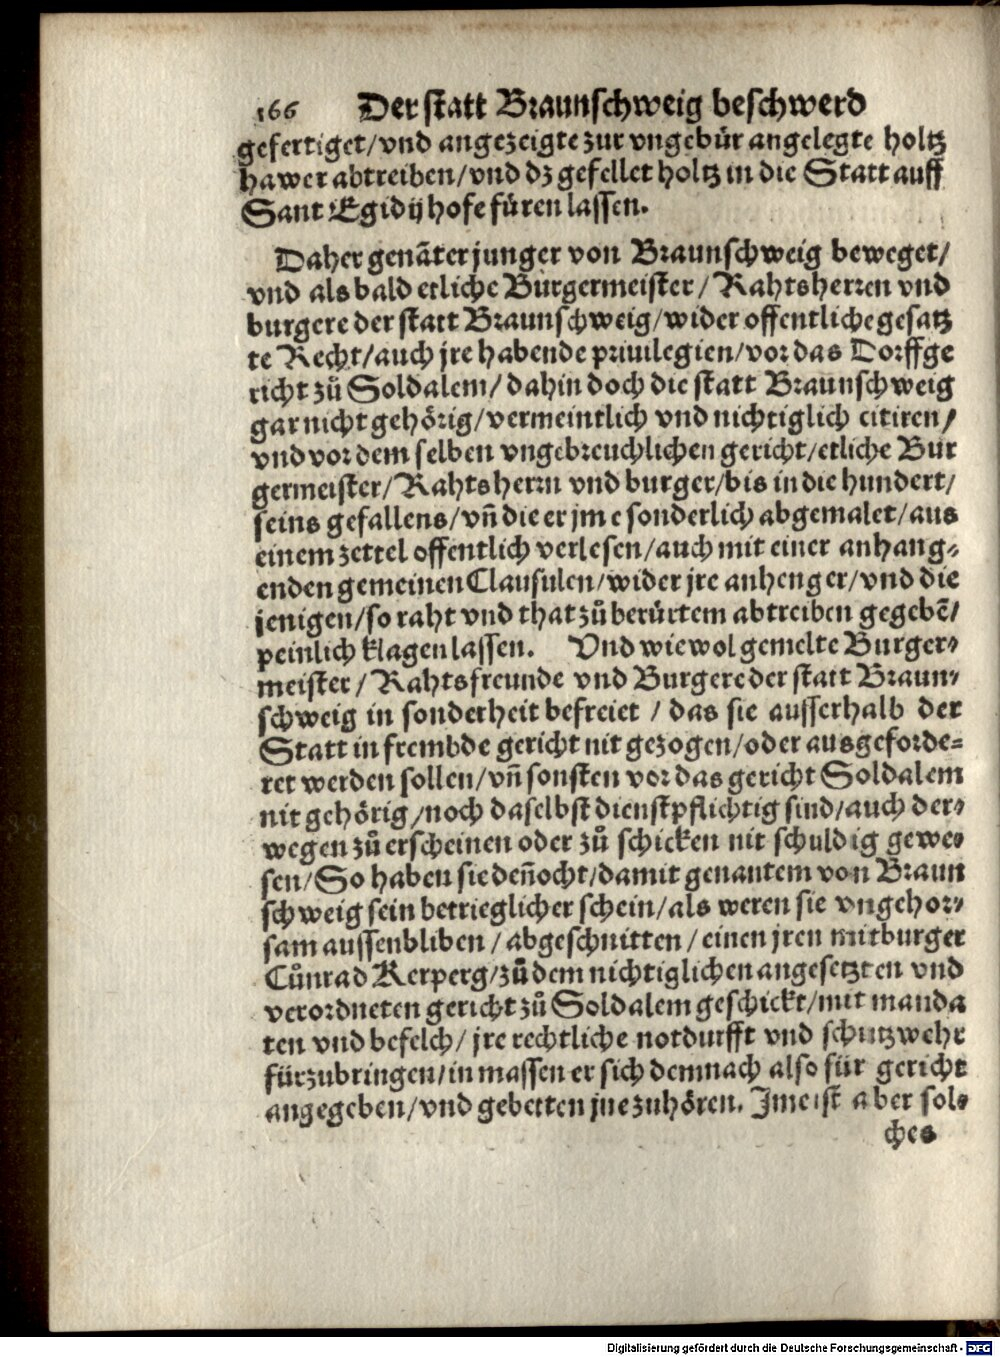 166 Der statt Braunschweig beschwerd
gefertiget/vnd angezeigte zur vngebür angelegte holtz
hawer abtreiben/vnd dz gefellet holtz in die Statt auff
Sant Egidij hofe füren lassen.
Daher genãter junger von Braunschweig beweget/
vnd als bald etliche Burgermeister/Rahtsherren vnd
burgere der statt Braunschweig/wider offentliche gesatz
te Recht/auch jre habende priuilegien/vor das Dorffge
richt zů Soldalem/dahin doch die statt Braunschweig
gar nicht gehörig/vermeintlich vnd nichtiglich citiren/
vnd vor dem selben vngebreuchlichen gericht/etliche Bur
germeister/Rahtsherrn vnd burger/bis in die hundert/
seins gefallens/vñ die er jme sonderlich abgemalet/aus
einem zettel offentlich verlesen/auch mit einer anhang-
enden gemeinen Clausulen/wider jre anhenger/vnd die
jenigen/so raht vnd that zů berürtem abtreiben gegebẽ/
peinlich klagen lassen. Vnd wiewol gemelte Burger-
meister/Rahtsfreunde vnd Burgere der statt Braun-
schweig in sonderheit befreiet/das sie ausserhalb der
Statt in frembde gericht nit gezogen/oder ausgeforde-
ret werden sollen/vñ sonsten vor das gericht Soldalem
nit gehörig/noch daselbst dienstpflichtig sind/auch der-
wegen zů erscheinen oder zů schicken nit schuldig gewe-
sen/So haben sie deñocht/damit genantem von Braun
schweig sein betrieglicher schein/als weren sie vngehor-
sam aussenbliben/abgeschnitten/einen jren mitburger
Cůnrad Kerperg/zů dem nichtiglichen angesetzten vnd
verordneten gericht zů Soldalem geschickt/mit manda
ten vnd befelch/jre rechtliche notdurfft vnd schutzwehr
fürzubringen/in massen er sich demnach also für gericht
angegeben/vnd gebetten jne zuhören. Jme ist aber sol-
ches
Digitalisierung gefördert durch die Deutsche Forschungsgemeinschaft - DFG